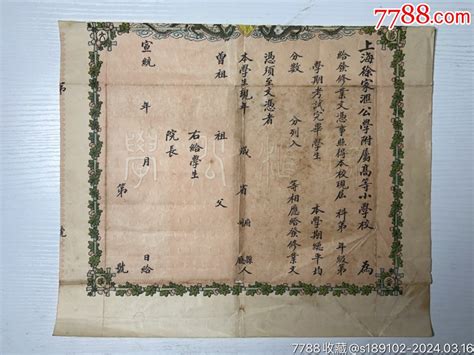 7788.com
上海徐家滙公學附屬高等小學校 為
給發修業文憑事照得本校現屆 科第 年級第
學期考試完畢學生 本學期總平均
分數 分列入 等相應給發修業文
憑須至文憑者
本學生現年 歲 省 縣人
曾祖 祖 父
右給學生
院長
宣統 年 月 第 日給 號
第 號
公
學
7788收藏@s189102-2024.03.16